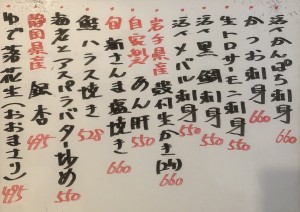 活〆かんぱち刺身 660
かつお刺身 660
生トロサーモン刺身 550
活〆黒鯛刺身 550
活〆メバル刺身 550
岩手県産 殻付生かき(1ヶ) 660
自家製 あん肝 550
旬 新さんま塩焼き 660
鮭ハラス焼き 528
海老とアスパラバター炒め 550
静岡県産 銀杏 495
ゆで落花生(おおまさり) 495